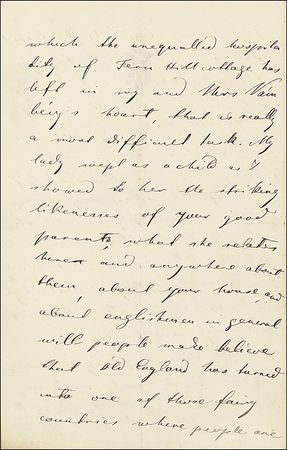 which the unequalled hospita
lity of Fern Hill cottage has
left in my and Mrs Vam
béry's heart, that is really
a most difficult task. My
lady wept as a child as I
showed to her the striking
likenesses of your good
parents, what she relates
here and anywhere about
them, about your house, and
about englishmen in general
will people make believe
that old England has turned
into one of those fairy
countries where people are